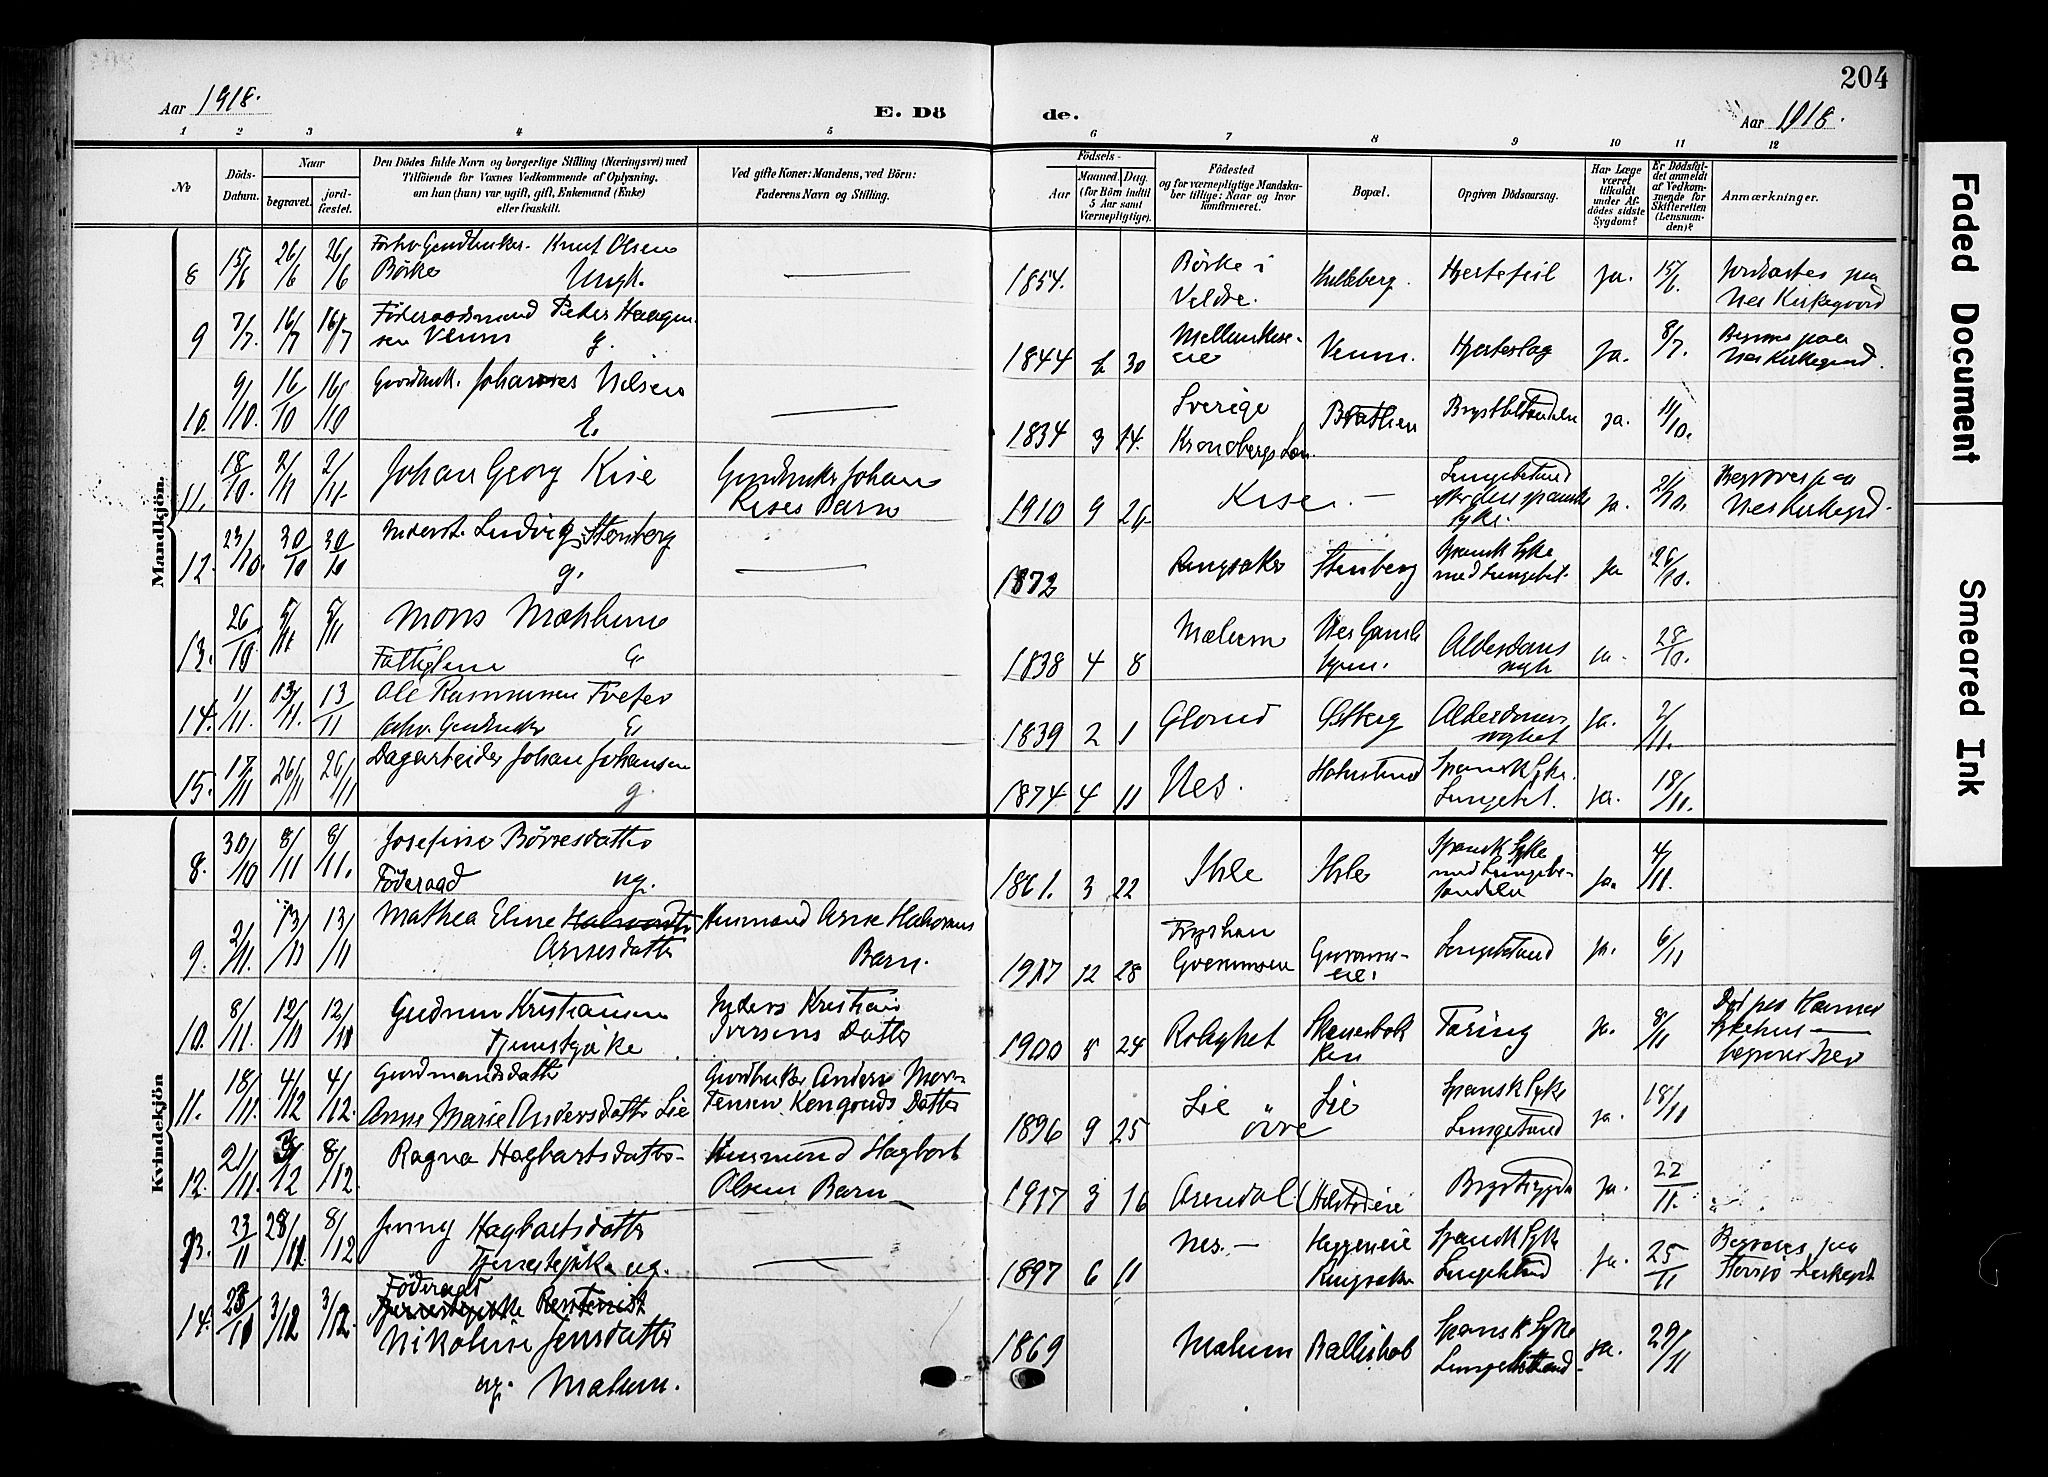 204
Aar 1918.
E. Dö
de.
Aar 1918.
1 2 3 4 5 6 7 8 9 10 11 12
No
Döds-Datum.
Naar
begravet.
jord-fæstet.
Den Dödes fulde Navn og borgerlige Stilling (Næringsvei) med
Tilföiende for Voxnes Vedkommende af Oplysning,
om han (hun) var ugift, gift, Enkemand (Enke)
eller fraskilt.
Ved gifte Koner: Mandens, ved Börn:
Faderens Navn og Stilling.
Födsels-
Aar
Maaned. Dag.
(for Börn indtil
5 Aar samt
Værnepligtige).
Födested
og for værnepligtige Mandska-
ber tillige: Naar og hvor
konfirmeret.
Bopæl.
Opgiven Dödsaarsag.
Har Læge
været
tilkaldt
under Af-
dödes sidste
Sygdom?
Er Dödsfal-
det anmeldt
af Vedkom-
mende for
Skifteretten
(Lensman-
den)?
Anmærkninger.
Mandkjön.
8 15/6 26/6 26/6 Knut Olsen
Börke Ungk.
1854. Börke i
Veldre. Helleberg. Hjertefeil ja. 15/6. Jordfæstes paa
Nes Kirkegaard
9 7/7. 16/7 16/7 Föderaadsmand Peter Haagen-
sen Venn g.
1844 6 30 Venn. Hjerteslag ja. 8/7. Begraves paa
Nes Kirkegaard.
10. 9/10. 16/10 16/10 Gaardbruk. Johannes Nilsen
E.
1834 3 14. Sverige
Kronobergs Len. Braathen Brystbetændelse ja. 11/10.
11. 18/10. 2/11 2/11. Johan Georg Kise
Gaardbruker Johan
Kises Barn
1910 9 26 Kise. — Lungebetænd
efter den spanske
Syke. ja. 21/10. Begraves paa
Nes Kirkegrd.
12. 23/10. 30/10 30/10 Inderst. Ludvig Stenberg
g.
1872 Ringsaker Stenberg Spansk Syke
med Lungebet. ja 26/10.
13. 26/10 5/11 5/11 Mons Mæhlum
Fattiglem E
1838 4 8 Mælum Nes Gamle
hjem. Alderdoms
svagh ja. 28/10.
14. 1/11. 13/11. 13/11 Ole Rasmussen
Gaardbruker E
1839 2 1 Glomd Østberg Alderdoms
svaghet ja. 2/11.
15. 17/11 26/11 26/11 Dagarbeider Johan Johansen
g.
1874 4 11 Nes. Spansk Syke.
Lungebet. ja. 18/11.
Kvindekjön
8. 30/10 8/11 8/11. Josefine Börresdatter
Föderaad ug.
1861. 3 22 Ihle Ihle Spansk Syke
med Lungebe-
tændelse ja. 4/11.
9. 2/11. 13/11 13/11 Mathea Eline
Arnesdatter
Husmand Arne Halvorsens
Barn.
1917 12 28 Lungebetænd ja. 6/11
10. 8/11. 12/11 12/11 Gudrun Kristiansen
Tjenestepike
Inders Kristian
Iversens Datter
1900 8 24 Rolighet Skanserbak
ken Tæring ja. 8/11 Död paa Hamar
Sykehus —
begraves her
11. 18/11. 4/12 4/12. Gaardmandsdatter
Anne Marie Andersdatter Lie
Gaardbruker Anders Mor-
tensen Kongruds Datter
1896 9 25 Lie
övre Lie Spansk Syke
Lungebetænd ja. 18/11
12. 21/11. 8/12 8/12. Ragna Hagbartsdatter
Husmand Hagbart
Olsens Barn
1917 3 16 Arendal Brystsygdom ja. 22/11.
13. 23/11 28/11 8/12 Jenny Hagbartsdatter
Tjenestepike ug.
1897 6 11 Nes. — Hyggeneie
Ringsaker Spansk Syke
Lungebetænd ja. 25/11 Begraves paa
Kirkegrd
14. 23/10 3/12 3/12. Föderaad
Tjenestepike Rentenist
Nikoline Jensdatter
ug. Mælum.
1869 Mælum Ballishol Spansk Syke
Lungebetænd ja. 29/11
Faded Document
Smeared Ink